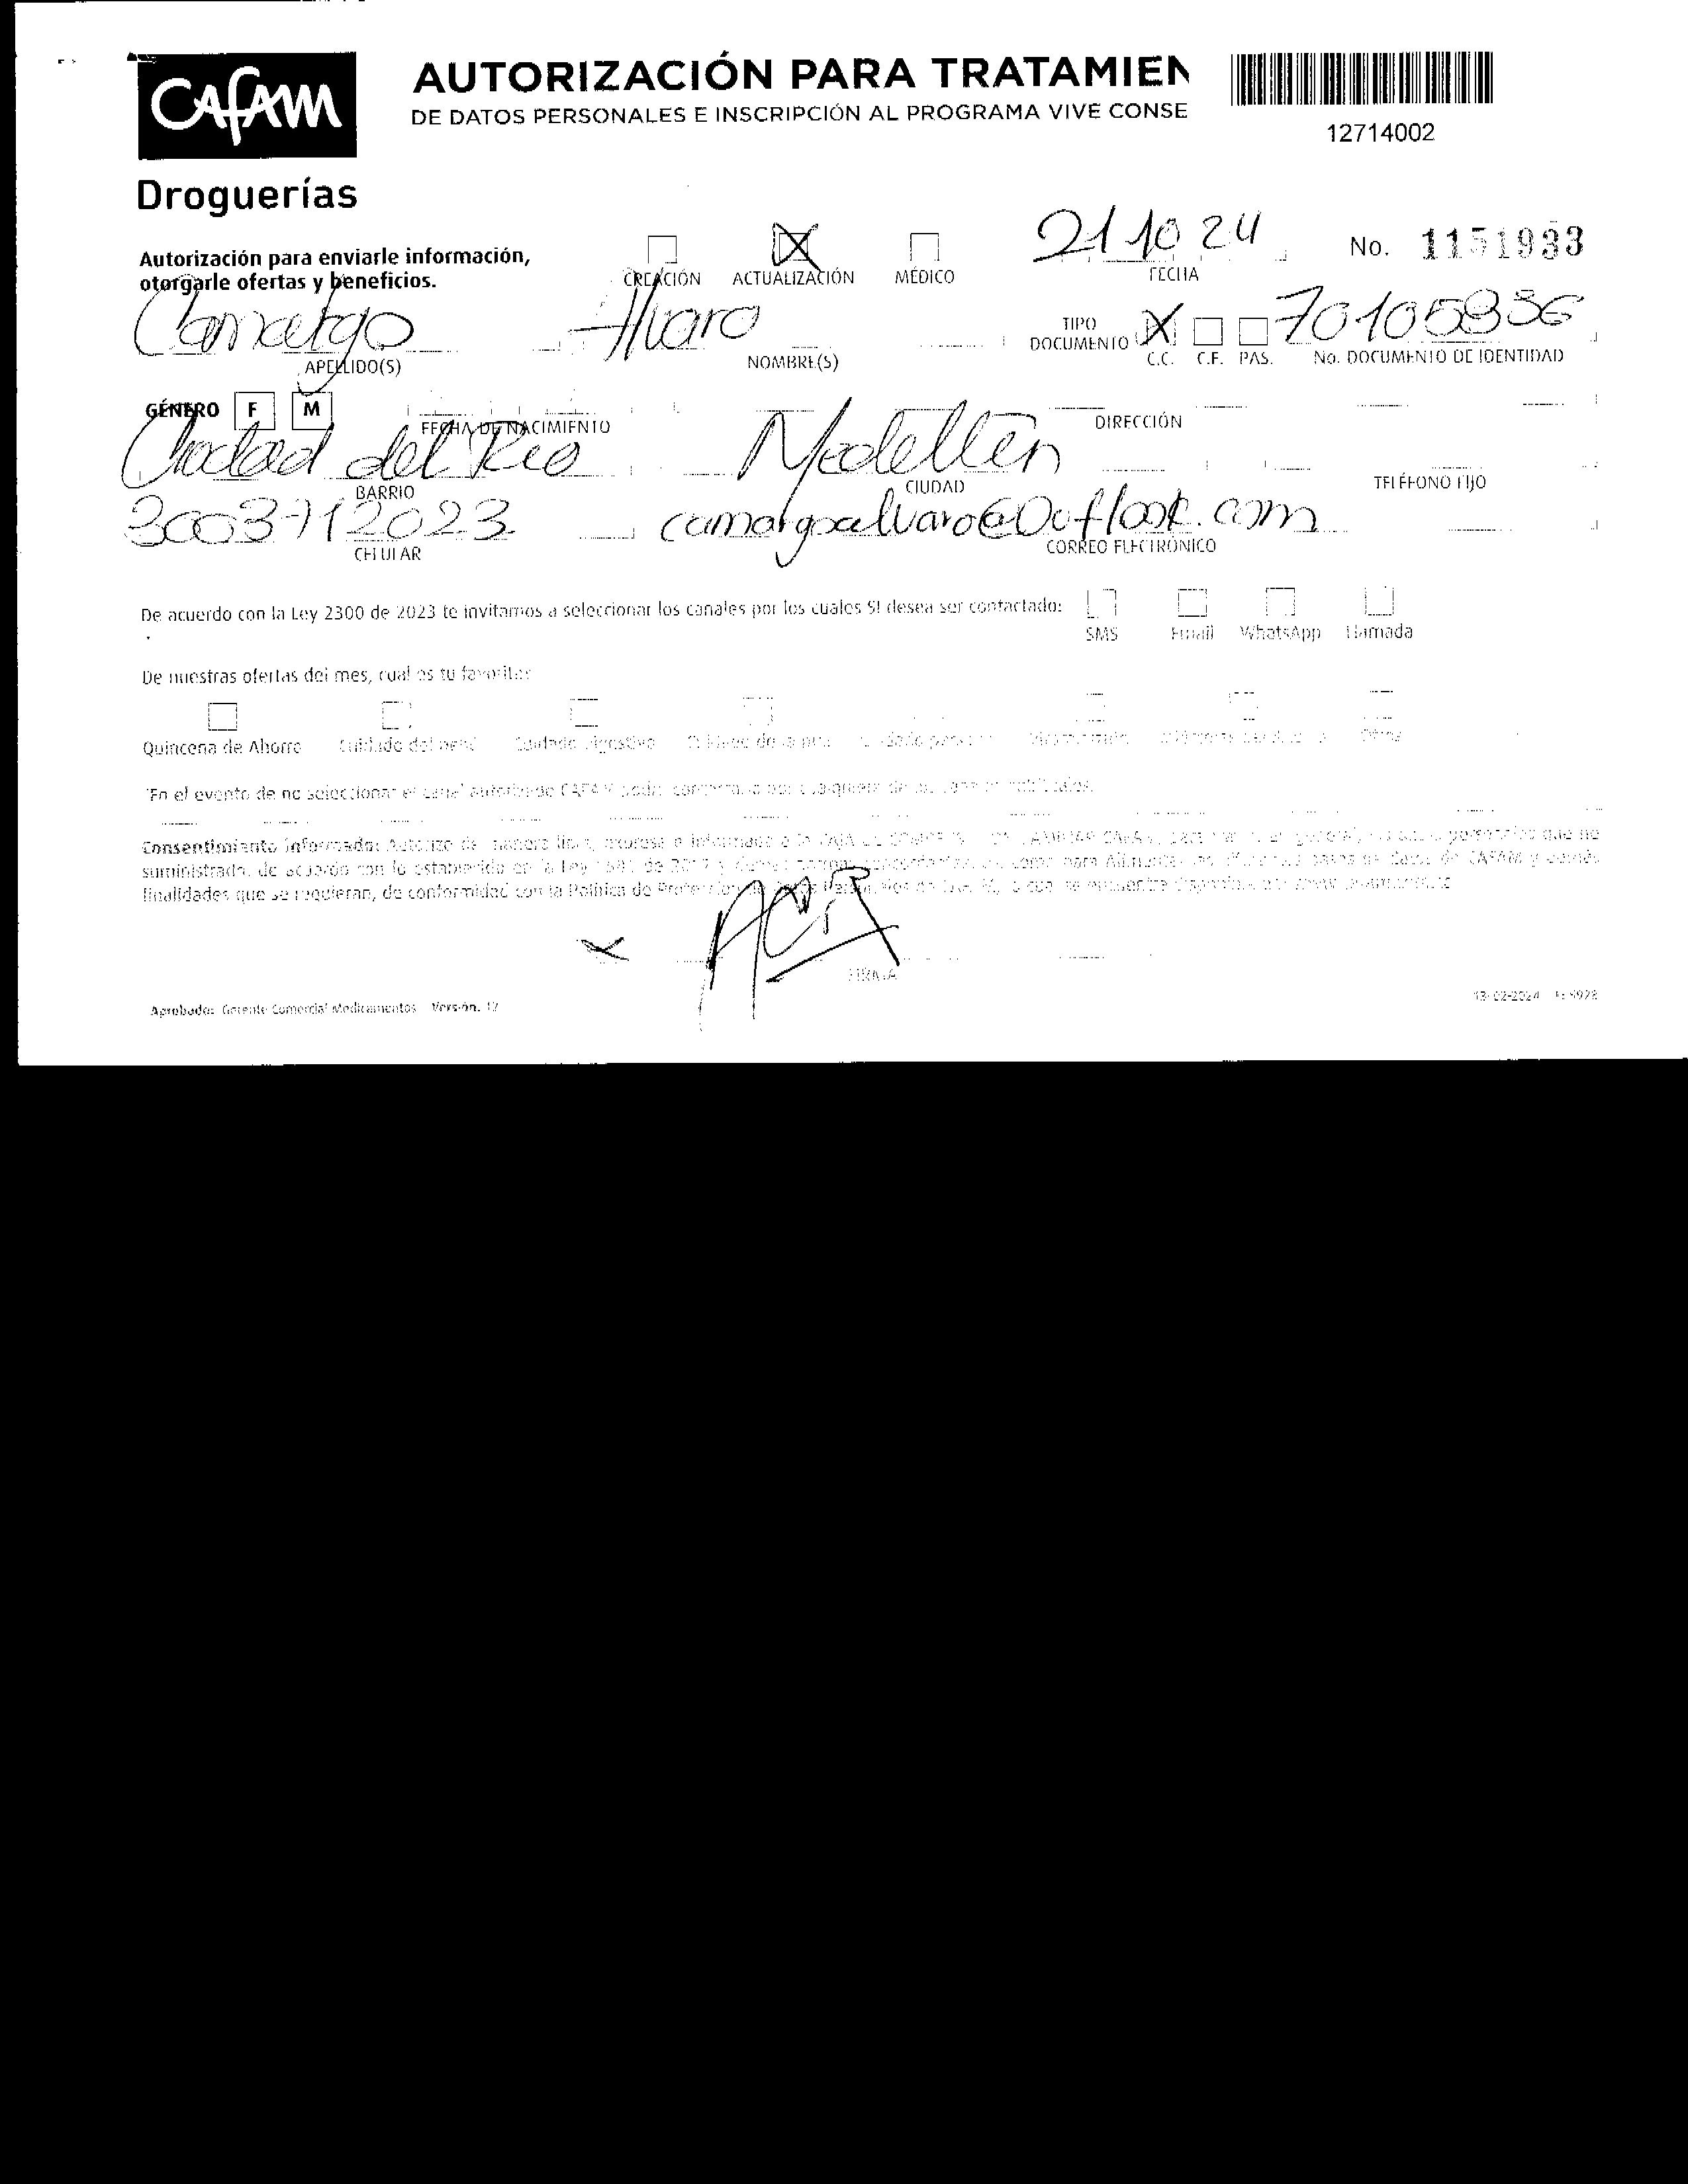 CAFAM
Droguerías
AUTORIZACIÓN PARA TRATAMIEN
DE DATOS PERSONALES E INSCRIPCIÓN AL PROGRAMA VIVE CONSE
12714002
Autorización para enviarle información,
otorgarle ofertas y beneficios.
CREACIÓN ACTUALIZACIÓN MÉDICO
21 10 24
FECHA
No. 1151933
Camargo Alvaro
APELLIDO(S) NOMBRE(S)
TIPO
DOCUMENTO
X
C.C. C.E. PAS.
70105836
No. DOCUMENTO DE IDENTIDAD
GÉNERO F M
FECHA DE NACIMIENTO
DIRECCIÓN
Ciudad del Rio Medellin
BARRIO CIUDAD TELÉFONO FIJO
3003712023 camargoalvaro@Outlook.com
CELULAR CORREO ELECTRÓNICO
De acuerdo con la Ley 2300 de 2023 te invitamos a seleccionar los canales por los cuales SI desea ser contactado:
SMS Email WhatsApp Llamada
De nuestras ofertas del mes, cual es tu favorita:
Quincena de Ahorro Cuidado del bebé Cuidado digestivo Otros
En el evento de no seleccionar el canal autorizado CAFAM podrá
Consentimiento informado: Autorizo de manera libre, expresa e informada a la personales que he
suministrado, de acuerdo con lo establecido en la Ley 1581 de 2012 y demás normas bases de datos de CAFAM y demás
finalidades que se requieran, de conformidad con la Política de Protección de
ACR
FIRMA
Aprobado: Gerente Comercial Medicamentos Versión. 12
13-02-2024